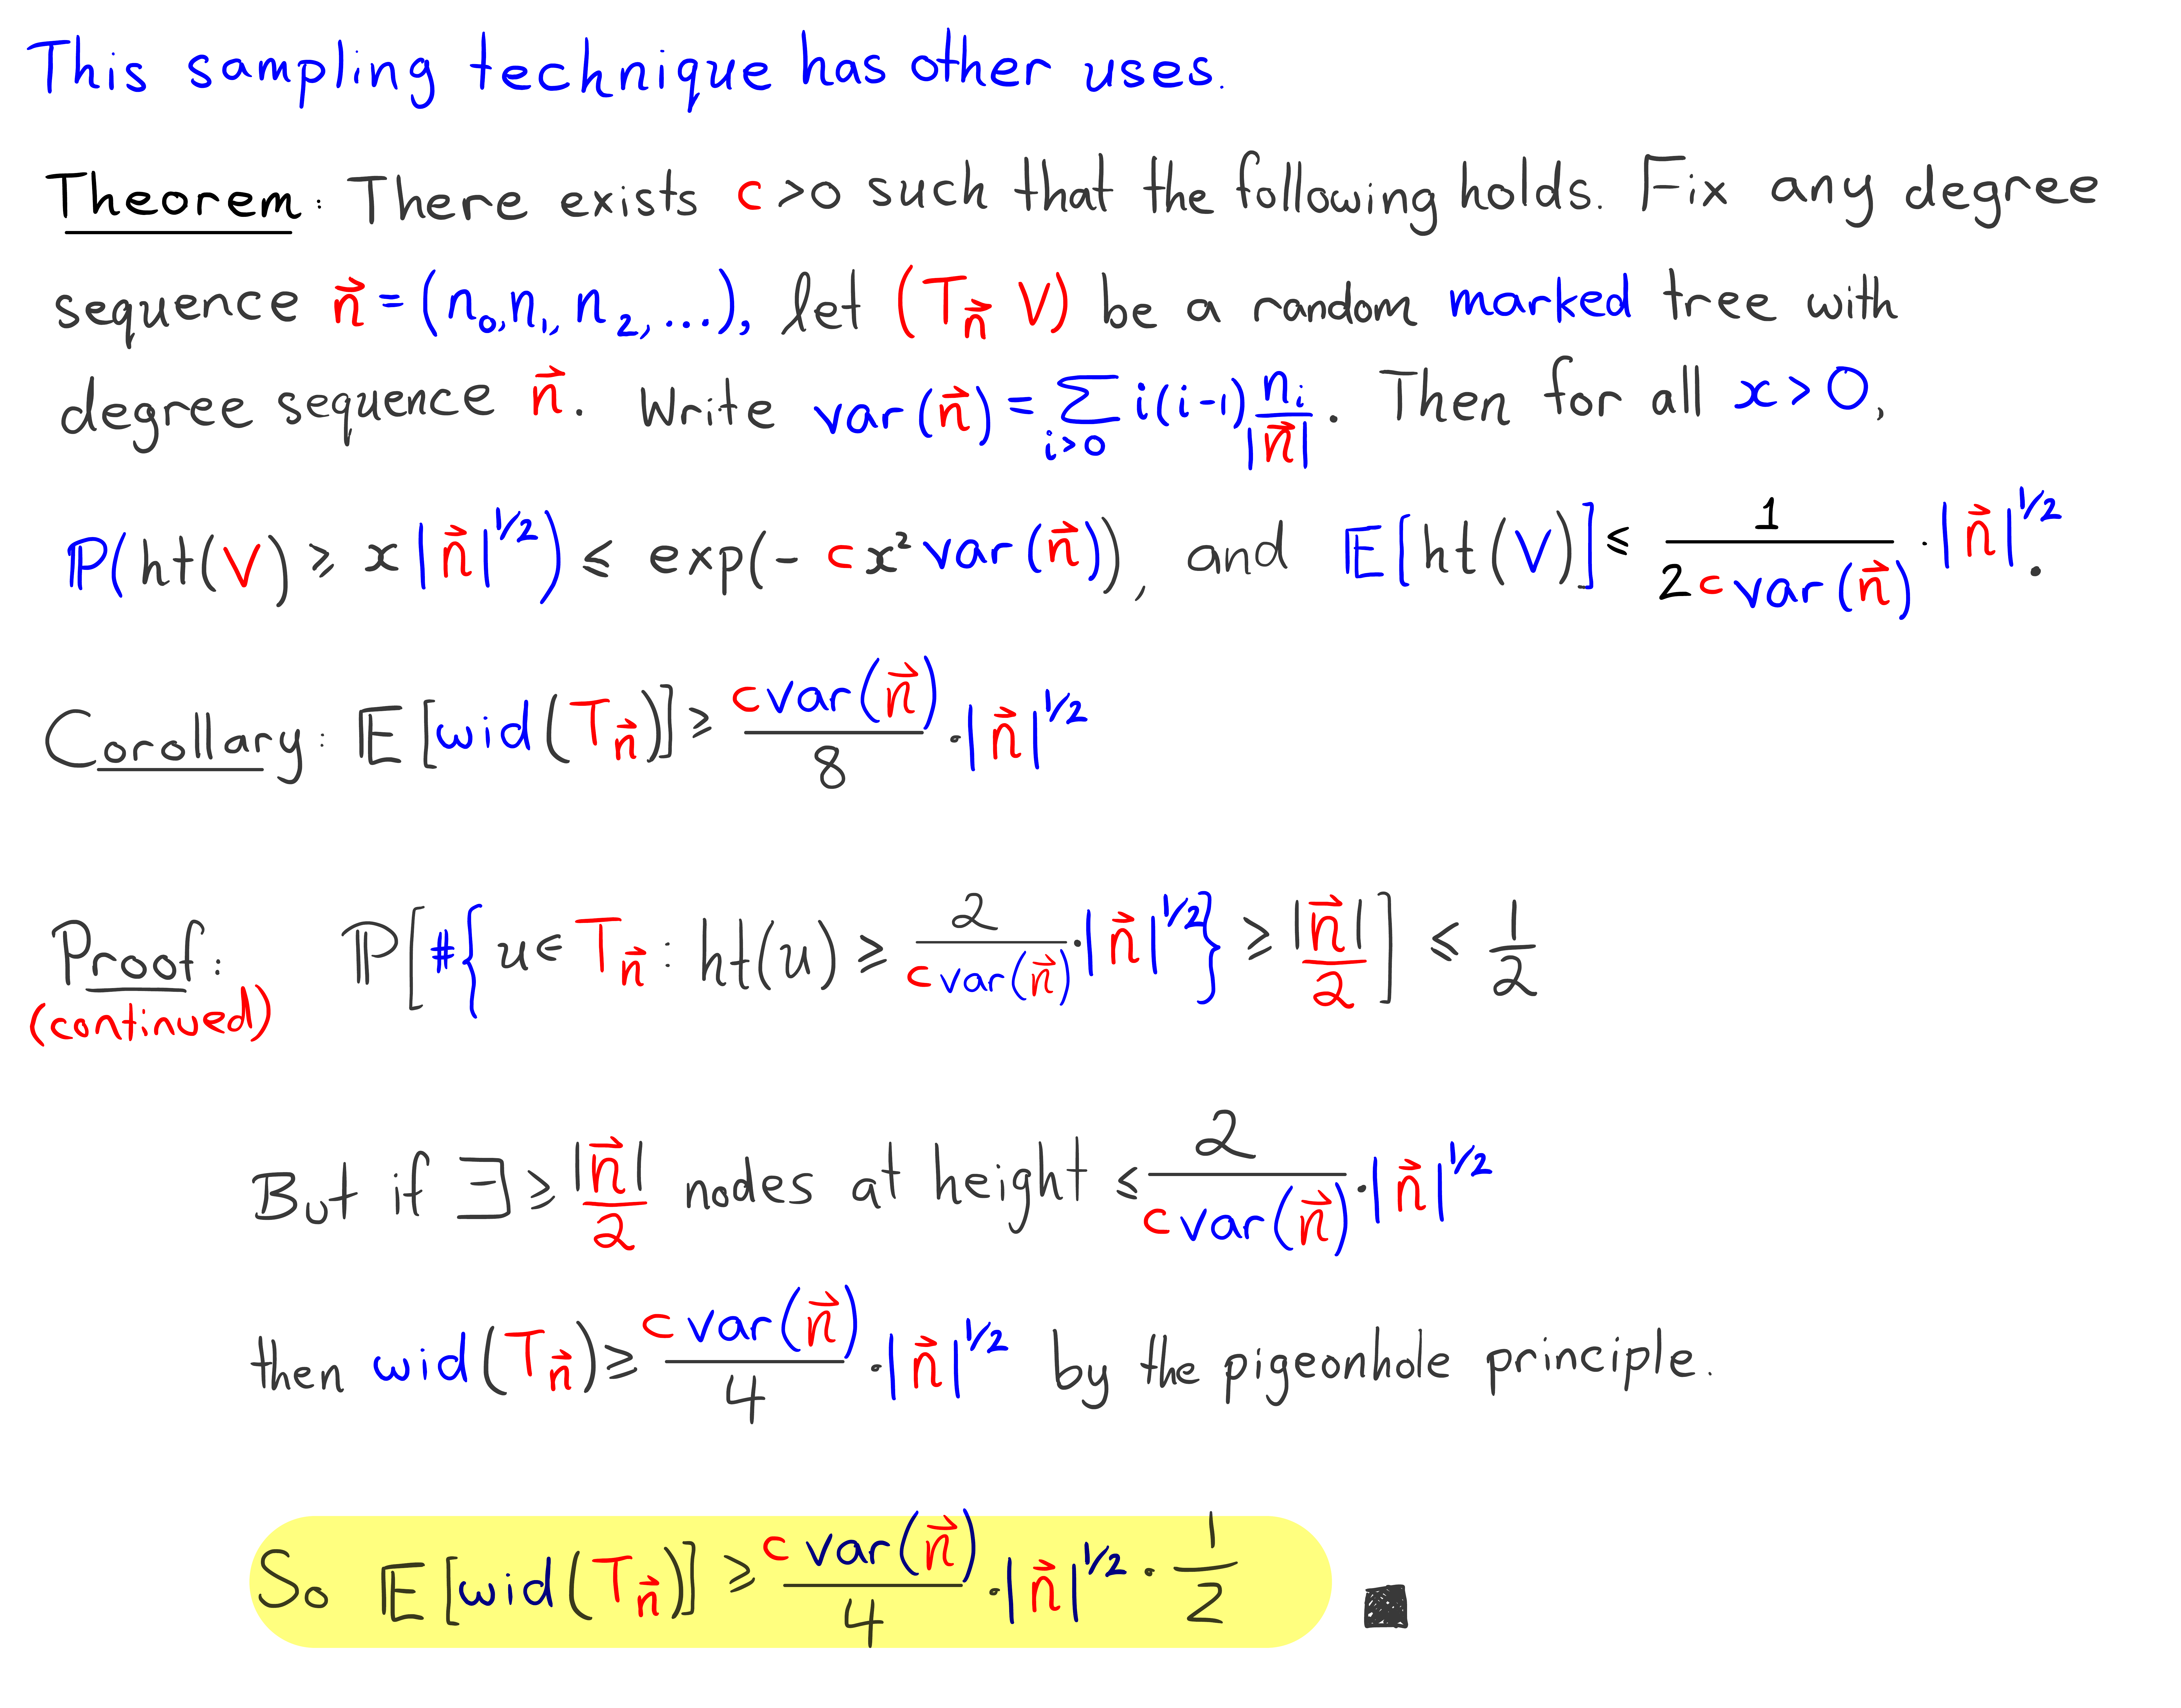 This sampling technique has other uses.
Theorem: There exists c>0 such that the following holds. Fix any degree
sequence n⃗ = (n₀, n₁, n₂, ...), let (T_n⃗ V) be a random marked tree with
degree sequence n⃗. Write var(n⃗) = ∑_{i>0} i(i-1) n_i/|n⃗|. Then for all x>0,
P(ht(V) ≥ x|n⃗|^{1/2}) ≤ exp(- c x² var(n⃗)), and E[ht(V)] ≤ 1/(2 c var(n⃗)) · |n⃗|^{1/2}.
Corollary: E[wid(T_n⃗)] ≥ c var(n⃗)/8 · |n⃗|^{1/2}
Proof: P[#{u ∈ T_n⃗ : ht(u) ≥ 2/(c var(n⃗)) · |n⃗|^{1/2}} ≥ |n⃗|/2] ≤ 1/2
(continued)
But if ∃ ≥ |n⃗|/2 nodes at height ≤ 2/(c var(n⃗)) · |n⃗|^{1/2}
then wid(T_n⃗) ≥ c var(n⃗)/4 · |n⃗|^{1/2} by the pigeonhole principle.
So E[wid(T_n⃗)] ≥ c var(n⃗)/4 · |n⃗|^{1/2} · 1/2 ■